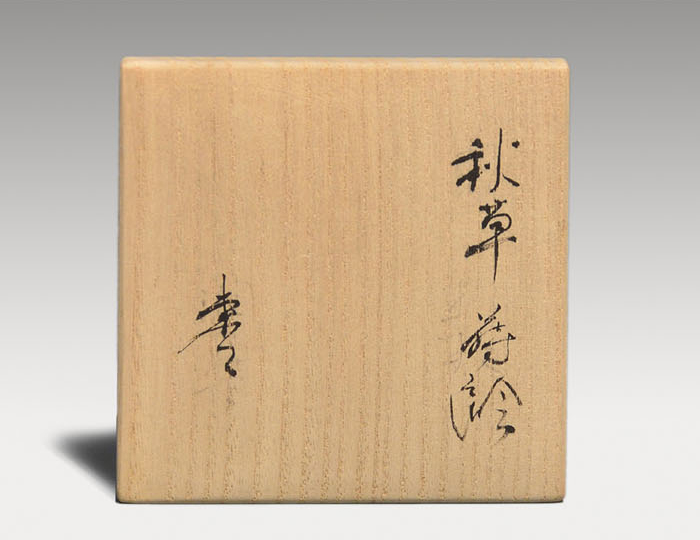 秋草蒔絵